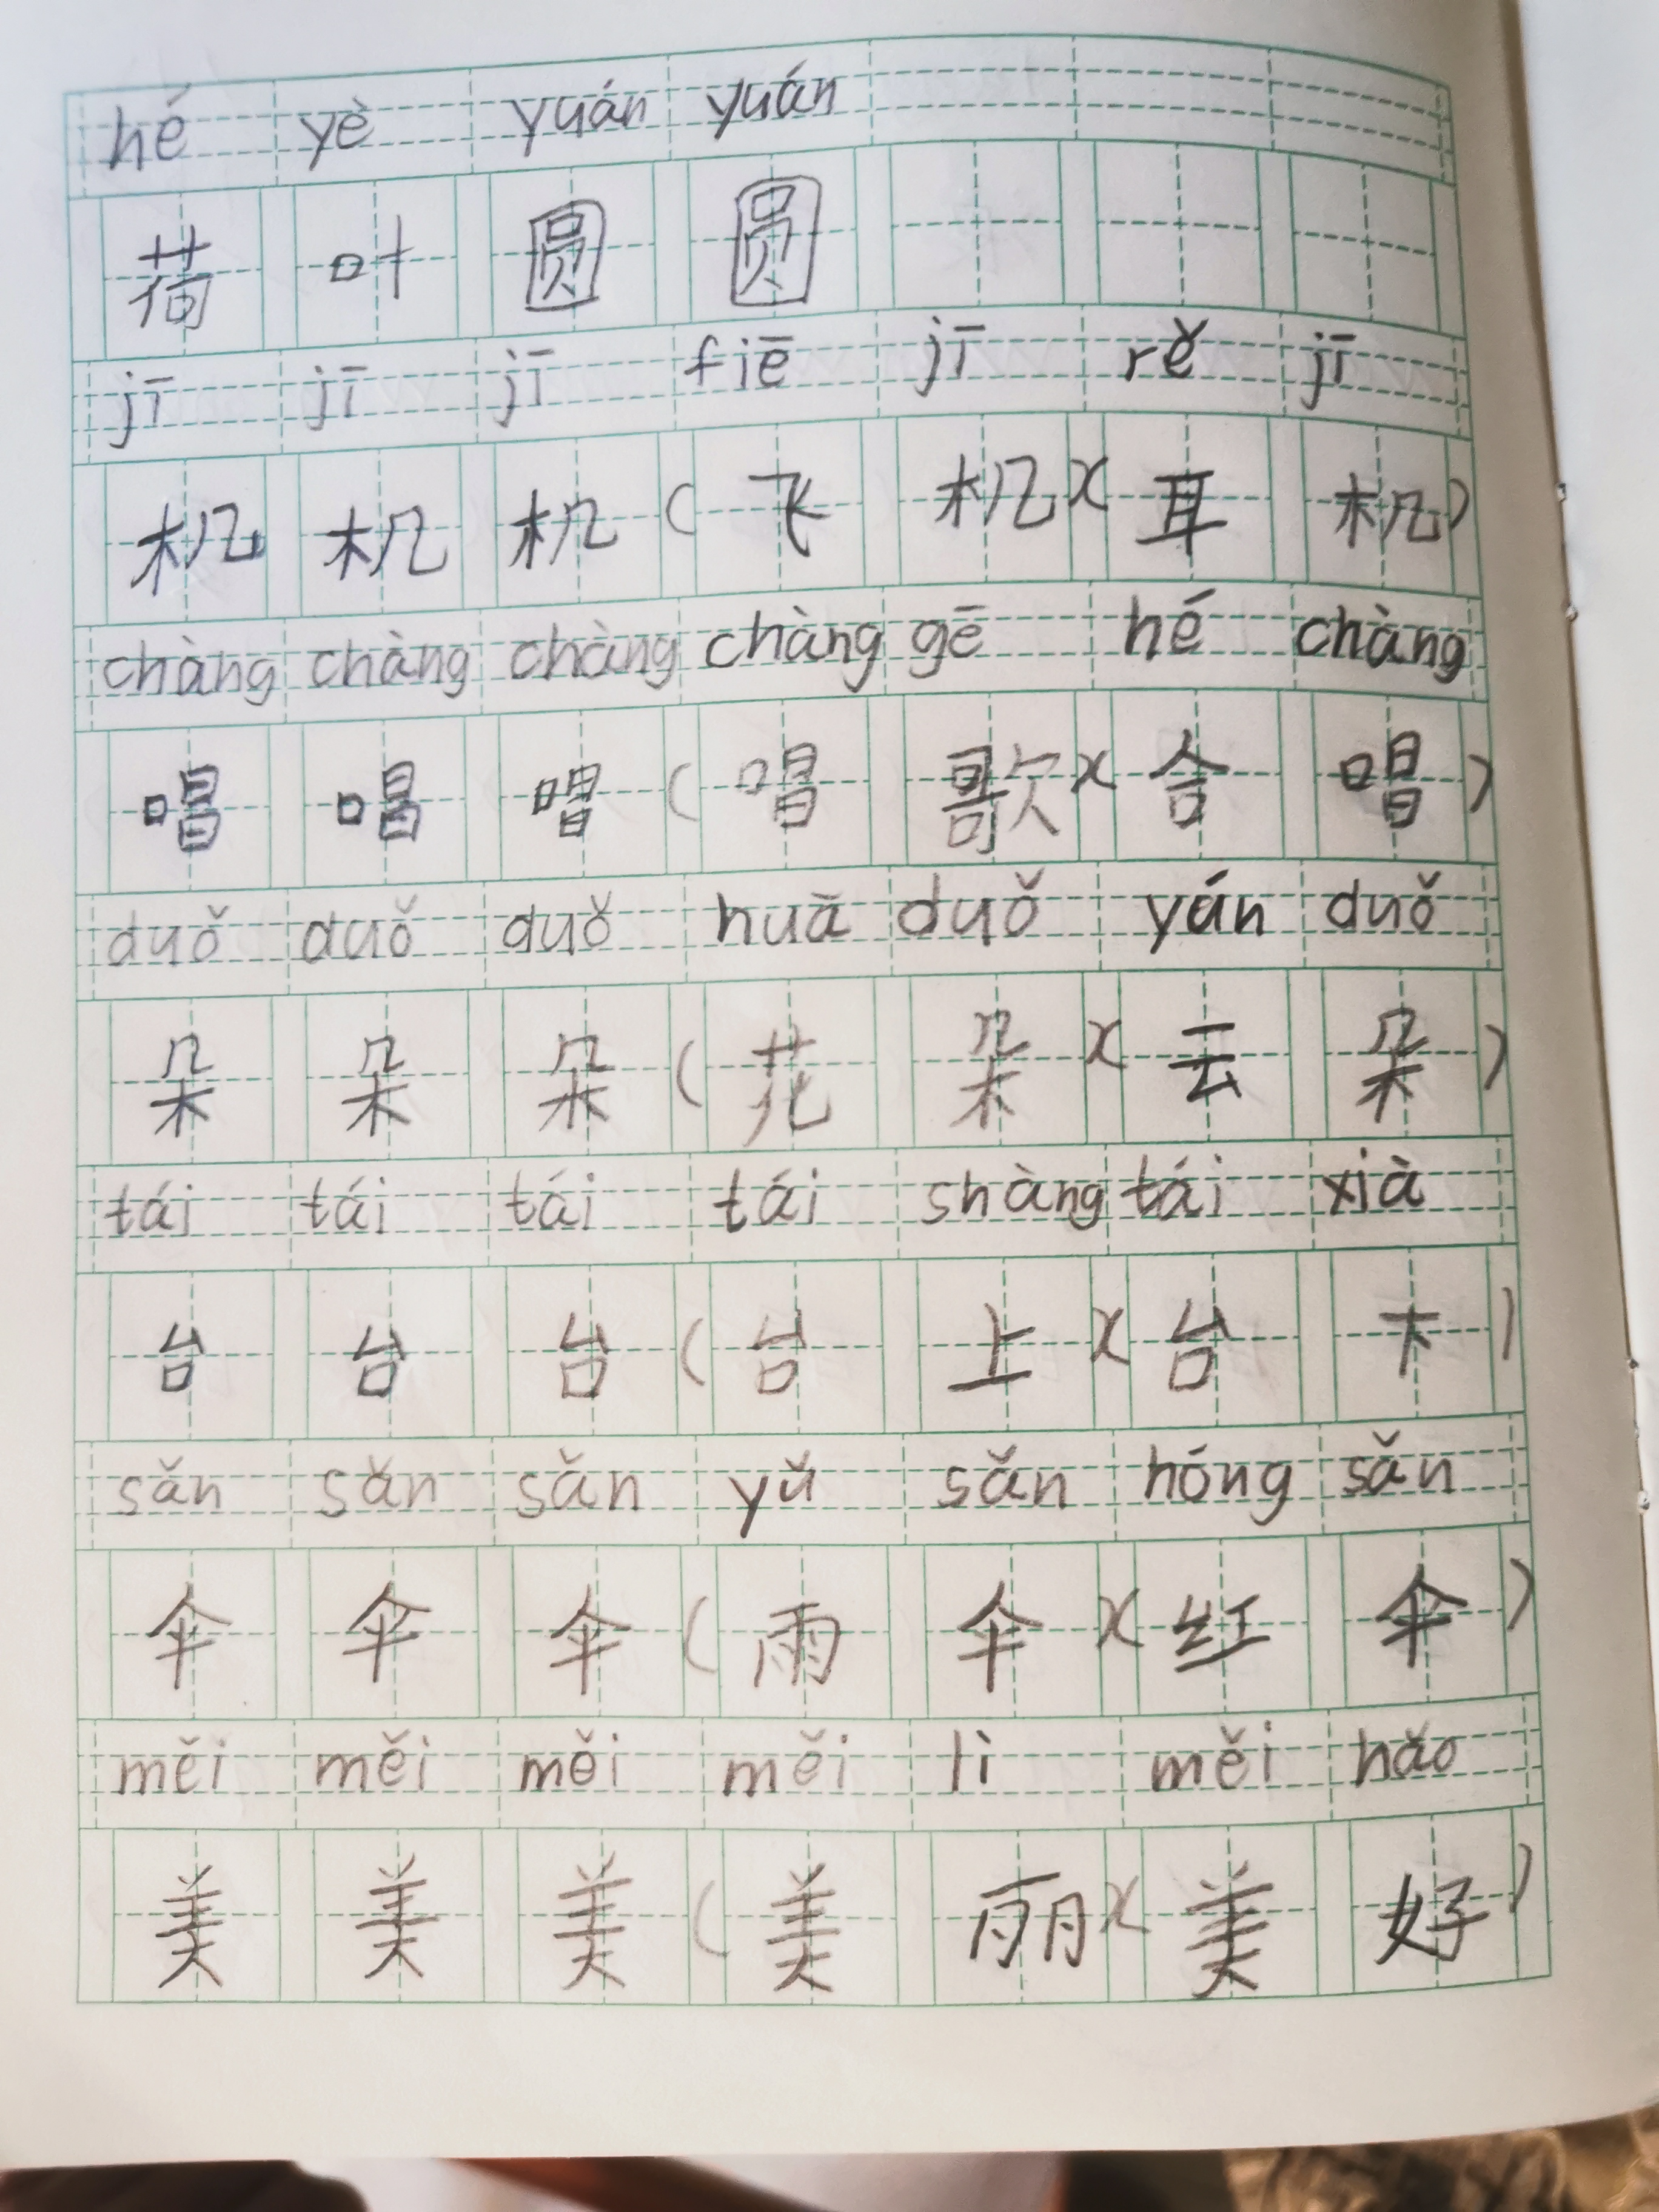 hé yè yuán yuán
荷 叶 圆 圆
jī jī jī fiē jī rě jī
机 机 机 ( 飞 机 )( 耳 机 )
chàng chàng chàng chàng gē hé chàng
唱 唱 唱 ( 唱 歌 )( 合 唱 )
duǒ duǒ duǒ huā duǒ yún duǒ
朵 朵 朵 ( 花 朵 )( 云 朵 )
tái tái tái tái shàng tái xià
台 台 台 ( 台 上 )( 台 下 )
sǎn sǎn sǎn yǔ sǎn hóng sǎn
伞 伞 伞 ( 雨 伞 )( 红 伞 )
měi měi měi měi lì měi hǎo
美 美 美 ( 美 丽 )( 美 好 )